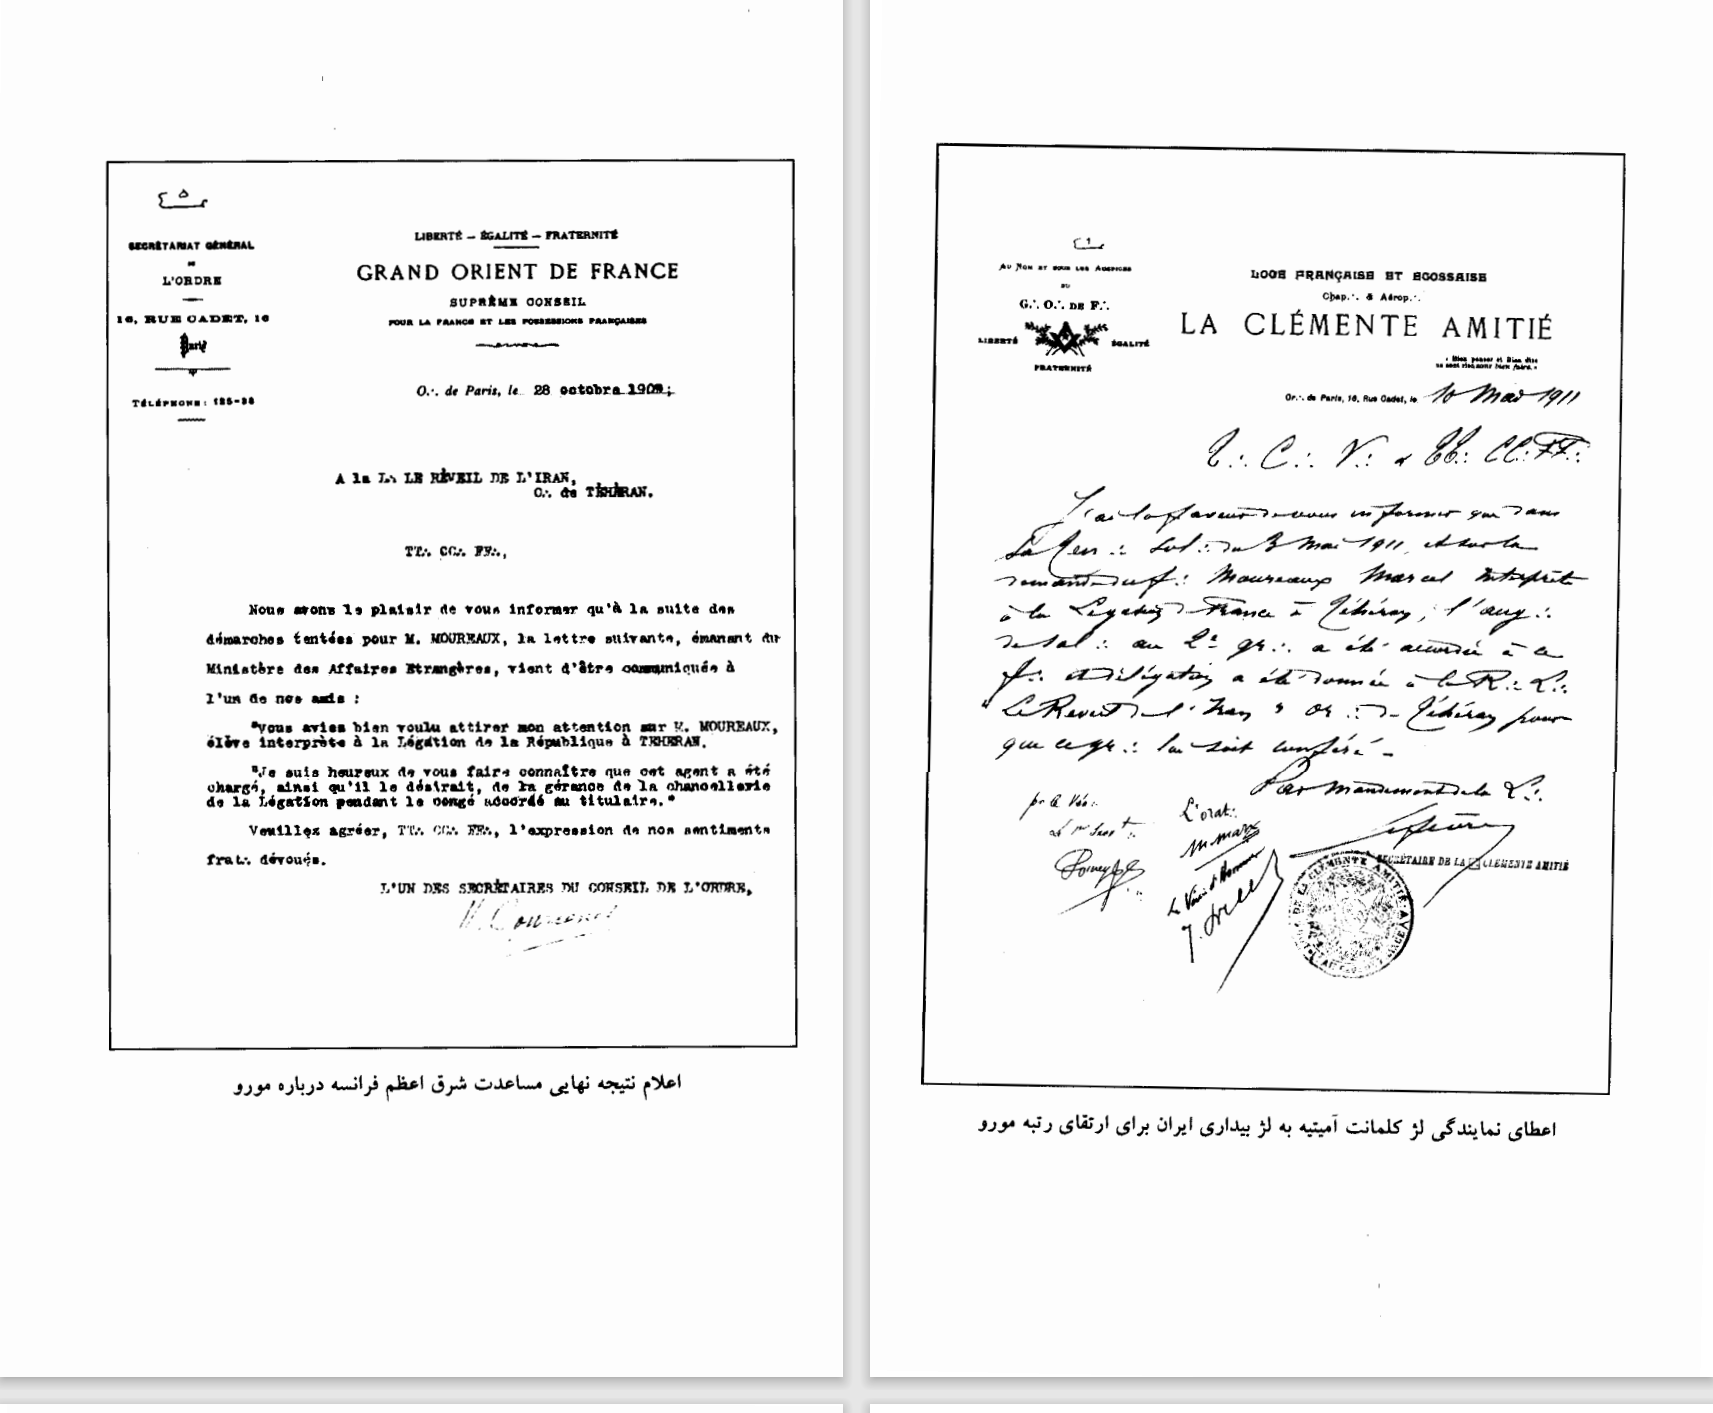 SECRÉTARIAT GÉNÉRAL
DE
L'ORDRE
16, RUE CADET, 16
Paris
TÉLÉPHONE:
LIBERTÉ – ÉGALITÉ – FRATERNITÉ
GRAND ORIENT DE FRANCE
SUPRÊME CONSEIL
POUR LA FRANCE ET LES POSSESSIONS FRANÇAISES
O∴ de Paris, le 28 octobre
A la L∴ LE RÉVEIL DE L'IRAN,
O∴ de TÉHÉRAN.
TT∴ CC∴ FF∴,
Nous avons le plaisir de vous informer qu'à la suite des
démarches tentées pour M. MOUREAUX, la lettre suivante, émanant du
Ministère des Affaires Etrangères, vient d'être communiquée à
l'un de nos amis :
"Vous aviez bien voulu attirer mon attention sur M. MOUREAUX,
élève interprète à la Légation de la République à TEHERAN.
"Je suis heureux de vous faire connaître que cet agent a été
chargé, ainsi qu'il le désirait, de la gérance de la chancellerie
de la Légation pendant le congé accordé au titulaire."
Veuillez agréer, TT∴ CC∴ FF∴, l'expression de nos sentiments
frat∴ dévoués.
L'UN DES SECRÉTAIRES DU CONSEIL DE L'ORDRE,
اعلام نتیجه نهایی مساعدت شرق اعظم فرانسه درباره مورو
AU NOM ET SOUS LES AUSPICES
DU
G∴ O∴ DE F∴
LIBERTÉ ÉGALITÉ
FRATERNITÉ
LOGE FRANÇAISE ET ECOSSAISE
Chap∴ & Aérop∴
LA CLÉMENTE AMITIÉ
« Bien penser et Bien dire
ne sont rien sans bien faire. »
Or∴ de Paris, 16, Rue Cadet, le 10 Mai 1911
T∴ C∴ V∴ & TT∴ CC∴ FF∴
J'ai la faveur de vous informer que dans
Sa Ten∴ Sol∴ du 3 Mai 1911, et sur la
demande du f∴ Moureaux Marcel Interprète
à la Légation de France à Téhéran, l'aug∴
de sal∴ au 2e gr∴ a été accordée à ce
f∴ et délégation a été donnée à la R∴ L∴
"Le Réveil de l'Iran" Or∴ de Téhéran pour
que ce gr∴ lui soit conféré –
Par mandement de la L∴
L'orat∴
SECRÉTAIRE DE LA CLÉMENTE AMITIÉ
DE LA CLÉMENTE AMITIÉ
اعطای نمایندگی لژ کلمانت آمیتیه به لژ بیداری ایران برای ارتقای رتبه مورو